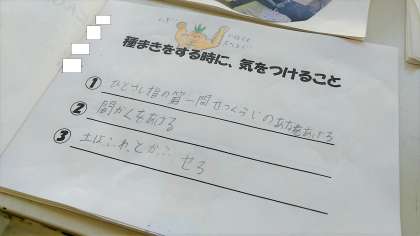 種まきをする時に、気をつけること
① ひとさし指の第一関せつくらいのあなをあける
② 間かくをあける
③ 土はふわっとかぶせる